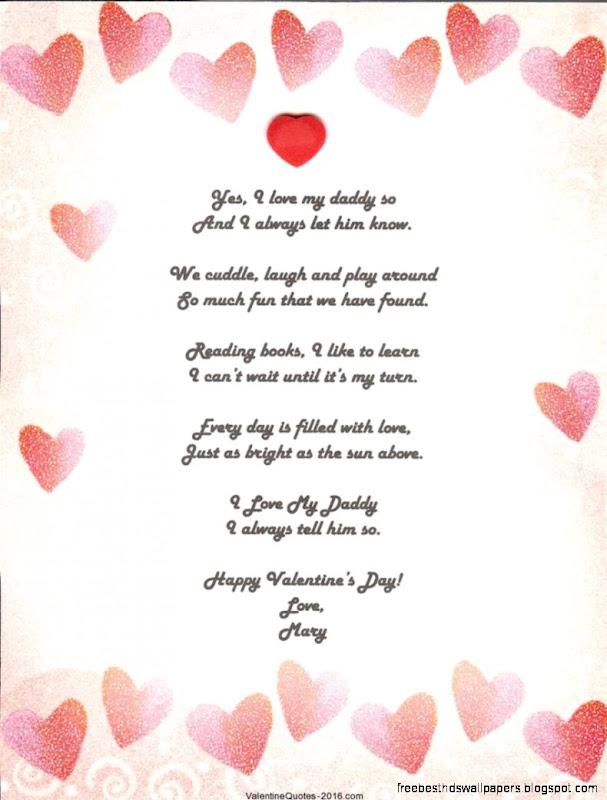 Yes, I love my daddy so
And I always let him know.
We cuddle, laugh and play around
So much fun that we have found.
Reading books, I like to learn
I can't wait until it's my turn.
Every day is filled with love,
Just as bright as the sun above.
I Love My Daddy
I always tell him so.
Happy Valentine's Day!
Love,
Mary
ValentineQuotes-2016.com
freebesthdswallpapers.blogspot.com